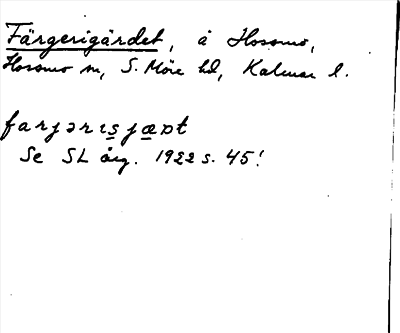 Färgerigårdet, å Hossmo,
Hossmo sn, S. Möre hd, Kalmar l.
farjərɩsjæɒt
Se SL årg. 1922 s. 45!